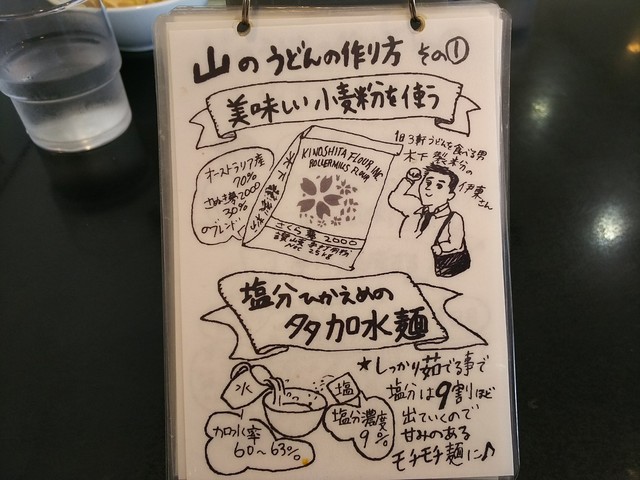 山のうどんの作り方 その①
美味しい小麦粉を使う
オーストラリア産
70%
さぬき夢2000
30%
のブレンド
KINOSHITA FLOUR INC
ROLLERMILLS FLOUR
さくら夢2000
NET 25kg
1日3軒うどんを食べる男
木下製粉の
伊東さん
塩分ひかえめの
多加水麺
水
塩
加水率
60〜63%
塩分濃度
9%
★しっかり茹でる事で
塩分は9割ほど
出ていくので
甘みのある
モチモチ麺に♪